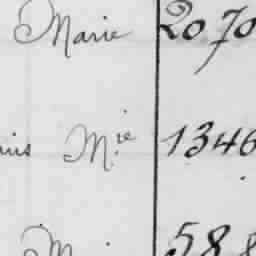 Marie 2070
M.ie 1346
588